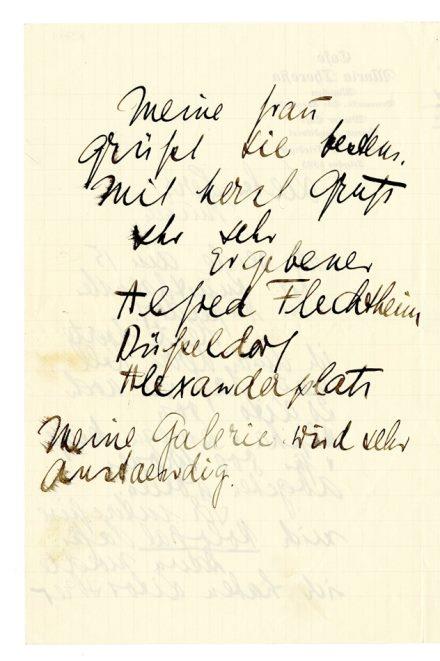 Meine Frau
grüßt Sie bestens.
Mit herzl Gruß
Ihr sehr
Ergebener
Alfred Flechtheim
Düsseldorf
Alexanderplatz
Meine Galerie wird sehr
anstaendig.